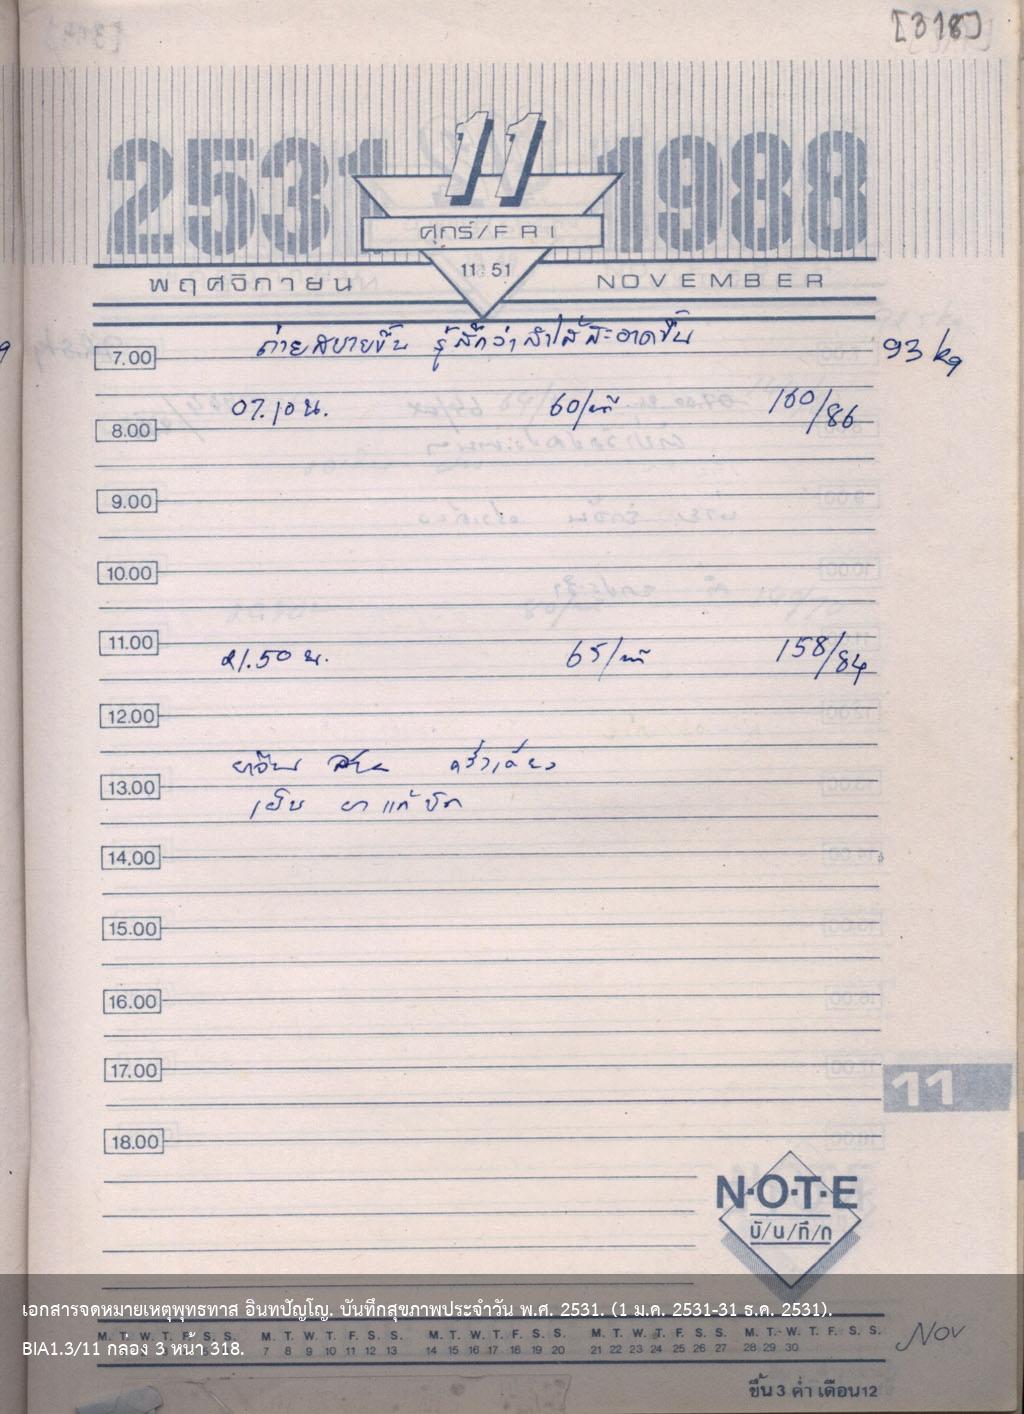 [318]
2531 11 1988
ศุกร์/FRI
พฤศจิกายน 11 51 NOVEMBER
7.00 ถ่ายสบายขึ้น รู้สึกว่าลำไส้สะอาดขึ้น 93 kg
07.10 น. 60/นาที 160/86
8.00
9.00
10.00
11.00
21.50 น. 65/นาที 158/84
12.00
ยาจีน ครั้งเดียว
13.00
เย็บ ยาแก้
14.00
15.00
16.00
17.00
11
18.00
N·O·T·E
บั/น/ทึ/ก
เอกสารจดหมายเหตุพุทธทาส อินทปัญโญ. บันทึกสุขภาพประจำวัน พ.ศ. 2531. (1 ม.ค. 2531-31 ธ.ค. 2531).
M. T. W. T. F. S. S. M. T. W. T. F. S. S. M. T. W. T. F. S. S. M. T. W. T. F. S. S. M. T. W. T. F. S. S. Nov
BIA1.3/11 กล่อง 3 หน้า 318.
7 8 9 10 11 12 13 14 15 16 17 18 19 20 21 22 23 24 25 26 27 28 29 30
ขึ้น 3 ค่ำ เดือน 12